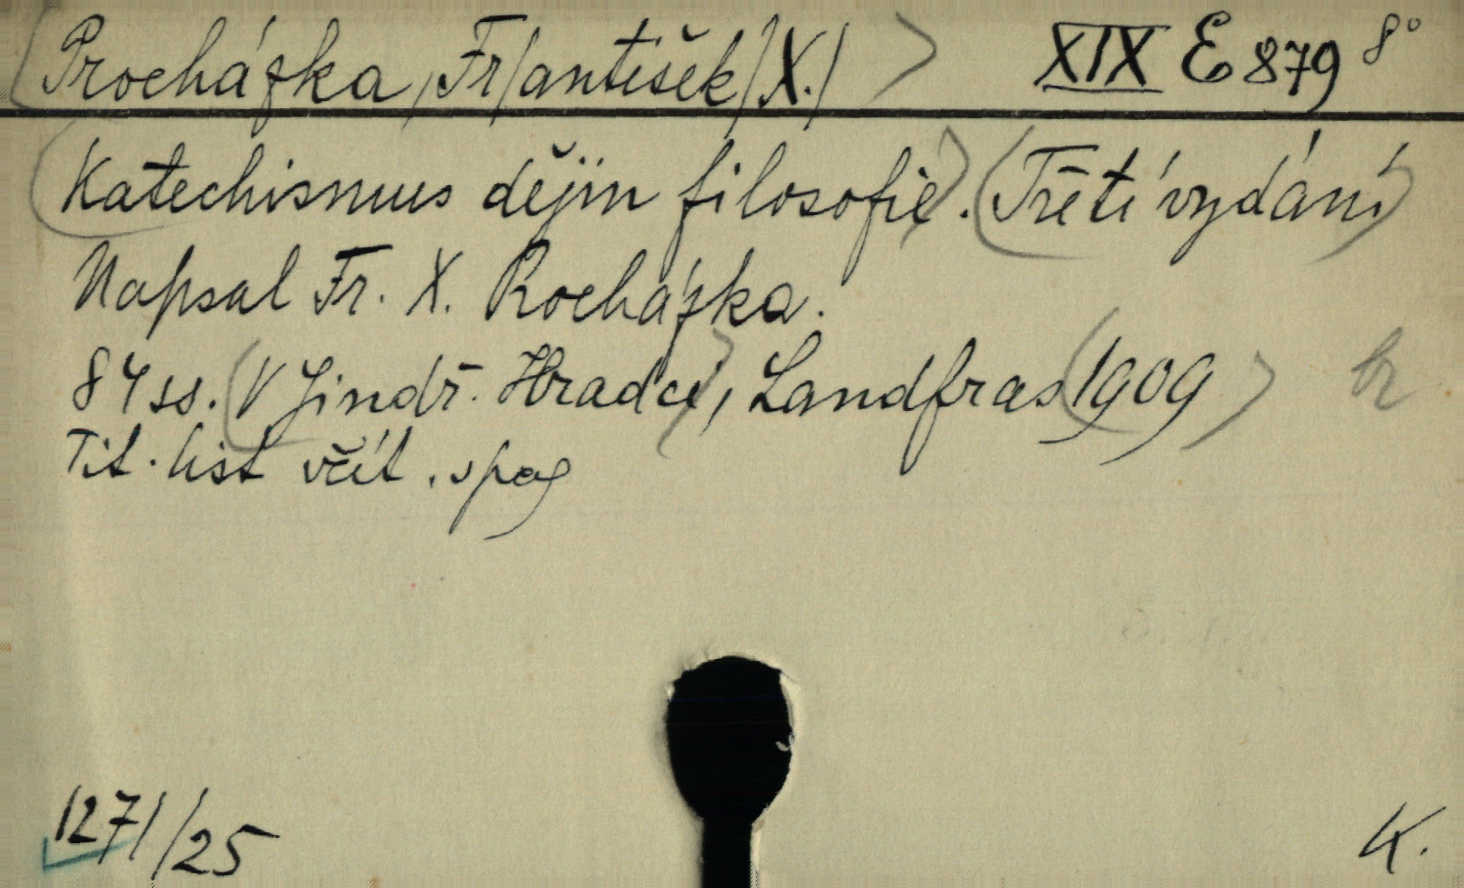 Procházka, Fr/antišek/X./ XIX E 879 8°
Katechismus dějin filosofie. Třetí vydání
Napsal Fr. X. Procházka.
84 ss. V Jindř. Hradci, Landfras 1909 br
Tit. list včít. v pag
1271/25 K.